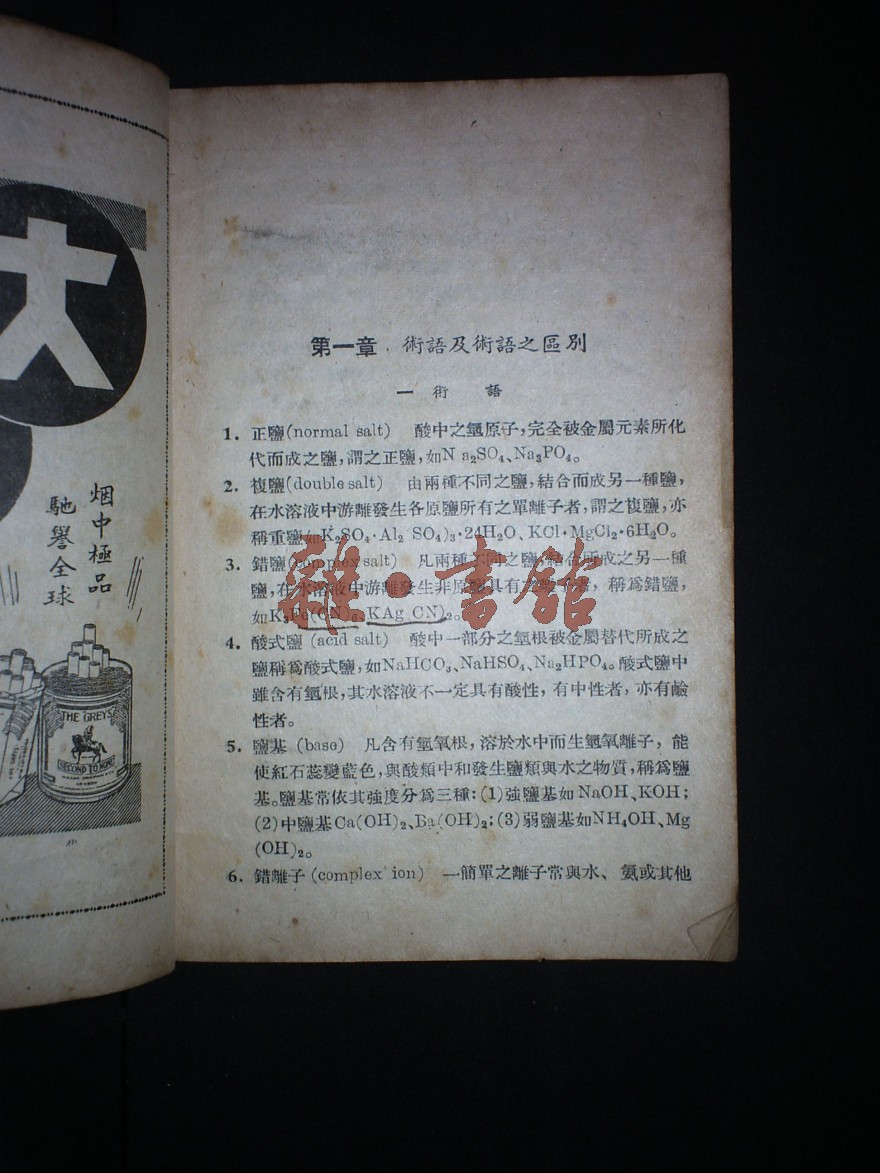 大
烟中極品
馳譽全球
THE GREYS
SECOND TO NONE
第一章 術語及術語之區別
一 術 語
1. 正鹽(normal salt) 酸中之氫原子，完全被金屬元素所化
代而成之鹽，謂之正鹽，如N a₂SO₄、Na₃PO₄。
2. 複鹽(double salt) 由兩種不同之鹽，結合而成另一種鹽，
在水溶液中游離發生各原鹽所有之單離子者，謂之複鹽，亦
稱重鹽如K₂SO₄·Al₂ SO₄)₃·24H₂O、KCl·MgCl₂·6H₂O。
3. 錯鹽(complex salt) 凡兩種不同之鹽，結合所成之另一種
鹽，在水溶液中游離發生非原鹽具有之離子者，稱爲錯鹽，
如K₃Fe(CN)₆、KAg CN)₂。
雜·書館
4. 酸式鹽 (acid salt) 酸中一部分之氫根被金屬替代所成之
鹽稱爲酸式鹽，如NaHCO₃、NaHSO₄、Na₂HPO₄。酸式鹽中
雖含有氫根，其水溶液不一定具有酸性，有中性者，亦有鹼
性者。
5. 鹽基 (base) 凡含有氫氧根，溶於水中而生氫氧離子，能
使紅石蕊變藍色，與酸類中和發生鹽類與水之物質，稱爲鹽
基。鹽基常依其強度分爲三種：(1)強鹽基如NaOH、KOH；
(2)中鹽基Ca(OH)₂、Ba(OH)₂；(3)弱鹽基如NH₄OH、Mg
(OH)₂。
6. 錯離子 (complex ion) 一簡單之離子常與水、氨或其他